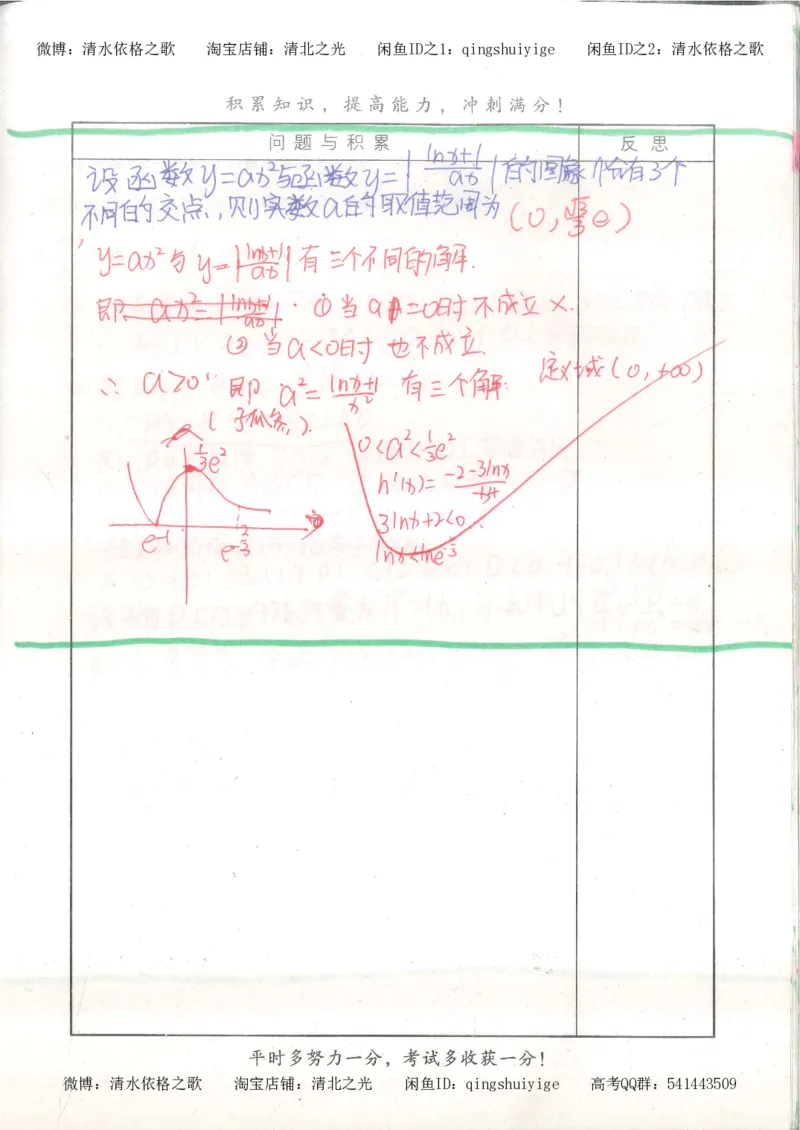 微博：清水依格之歌 淘宝店铺：清北之光 闲鱼ID之1：qingshuiyige 闲鱼ID之2：清水依格之歌
积累知识，提高能力，冲刺满分！
问题与积累 反思
设函数y=ax²与函数y=|lnx+1/ax|的图象恰有3个
不同的交点,则实数a的取值范围为(0,√3/3 e)
y=ax²与y=|lnx+1/ax|有三个不同的解.
即 ax²=|lnx+1/ax| ①当a=0时不成立×.
②当a<0时也不成立.
∴a>0 即a²=lnx+1/x² 有三个解: 定义域(0,+∞)
0<a²<1/3e²
1/3e²
h'(x)=-2-3lnx/x⁴
3lnx+2<0
e-1 e-2/3
平时多努力一分，考试多收获一分！
微博：清水依格之歌 淘宝店铺：清北之光 闲鱼ID：qingshuiyige 高考QQ群：541443509